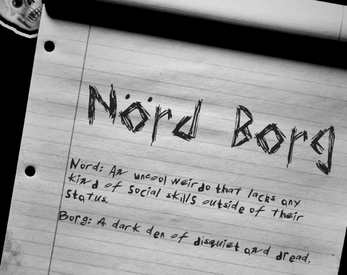 Nörd Borg
Nord: An uncool weirdo that lacks any
kind of social skills outside of their
status.
Borg: A dark den of disquiet and dread.